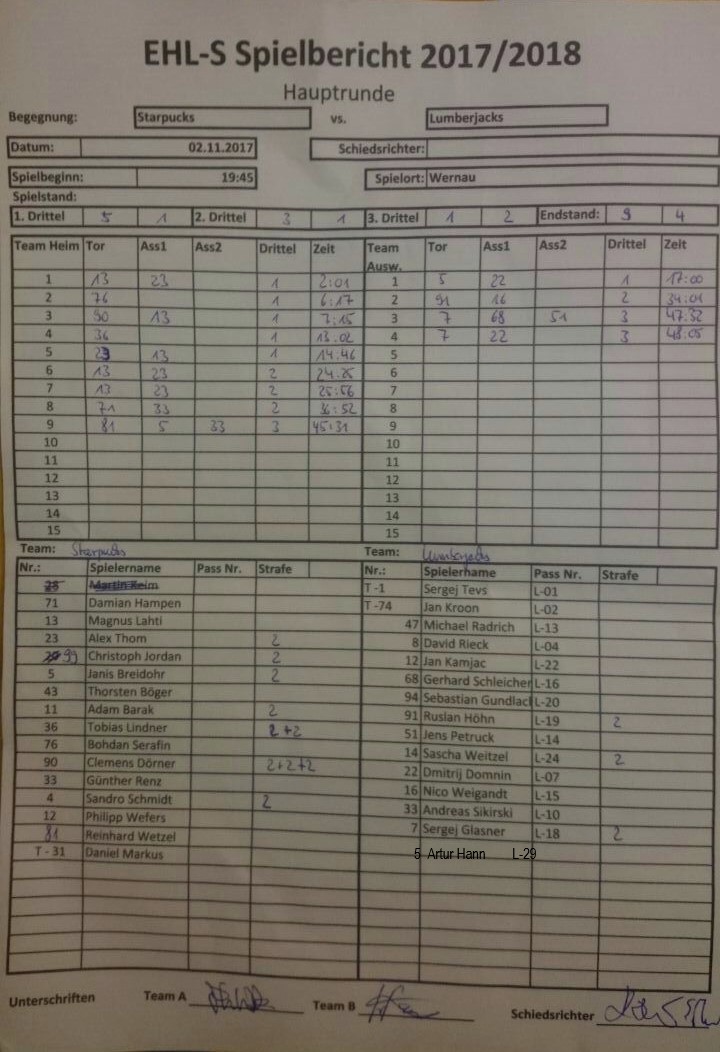 EHL-S Spielbericht 2017/2018
Hauptrunde
Begegnung: Starpucks vs. Lumberjacks
Datum: 02.11.2017 Schiedsrichter:
Spielbeginn: 19:45 Spielort: Wernau
Spielstand:
1. Drittel 5 1 2. Drittel 3 1 3. Drittel 1 2 Endstand: 9 4
Team Heim Tor Ass1 Ass2 Drittel Zeit Team Ausw. Tor Ass1 Ass2 Drittel Zeit
1 13 23 1 2:01 1 5 22 1 17:00
2 76 1 6:17 2 91 16 2 34:01
3 90 13 1 7:15 3 7 68 51 3 47:32
4 36 1 13:02 4 7 22 3 48:05
5 23 13 1 14:46 5
6 13 23 2 24:25 6
7 13 23 2 25:56 7
8 71 33 2 36:52 8
9 81 5 33 3 45:31 9
10 10
11 11
12 12
13 13
14 14
15 15
Team: Starpucks Team: Lumberjacks
Nr.: Spielername Pass Nr. Strafe Nr.: Spielername Pass Nr. Strafe
28 Martin Reim T -1 Sergej Tevs L-01
71 Damian Hampen T -74 Jan Kroon L-02
13 Magnus Lahti 47 Michael Radrich L-13
23 Alex Thom 2 8 David Rieck L-04
99 Christoph Jordan 2 12 Jan Kamjac L-22
5 Janis Breidohr 2 68 Gerhard Schleicher L-16
43 Thorsten Böger 94 Sebastian Gundlacl L-20
11 Adam Barak 2 91 Ruslan Höhn L-19 2
36 Tobias Lindner 2+2 51 Jens Petruck L-14
76 Bohdan Serafin 14 Sascha Weitzel L-24 2
90 Clemens Dörner 2+2+2 22 Dmitrij Domnin L-07
33 Günther Renz 16 Nico Weigandt L-15
4 Sandro Schmidt 2 33 Andreas Sikirski L-10
12 Philipp Wefers 7 Sergej Glasner L-18 2
81 Reinhard Wetzel
T - 31 Daniel Markus 5 Artur Hann L-29
Unterschriften Team A Team B Schiedsrichter